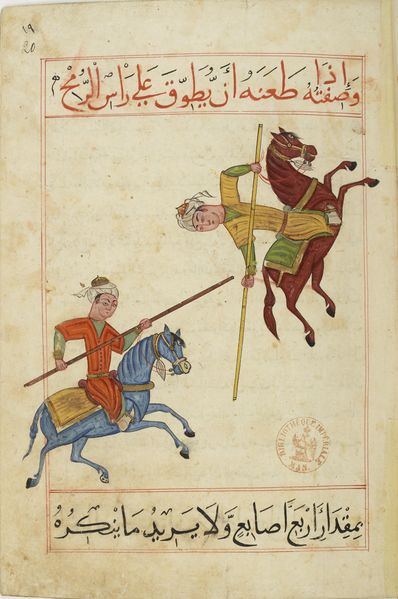 19
20
إذا
وصفته طعنه أن يطوق على رأس الرمح
BIBLIOTHÈQUE IMPÉRIALE
بمقدار أربع أصابع ولا يريد ما ينكره